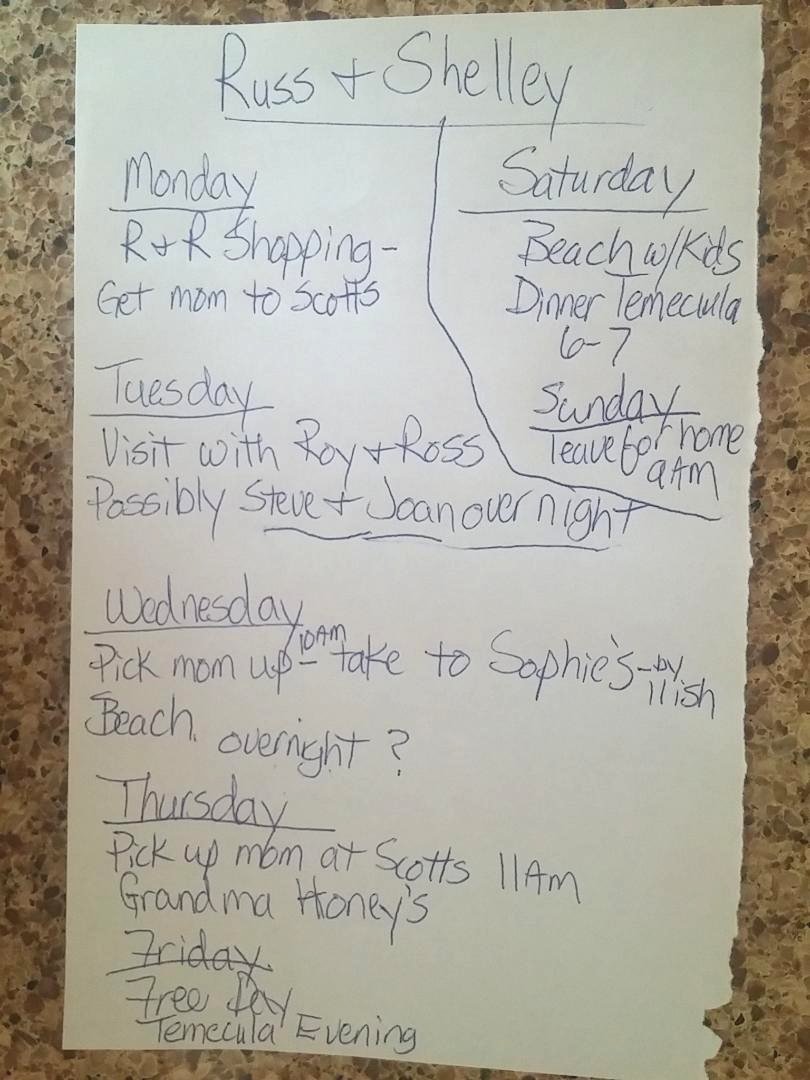 Russ + Shelley
Monday
R+R Shopping-
Get mom to Scotts
Tuesday
Visit with Roy + Ross
Possibly Steve + Joan over night
Wednesday
Pick mom up 10AM - take to Sophie's - by 11ish
Beach. overnight ?
Thursday
Pick up mom at Scotts 11AM
Grandma Honey's
Friday
Free Day
Temecula Evening
Saturday
Beach w/Kids
Dinner Temecula
6-7
Sunday
leave for home
9AM